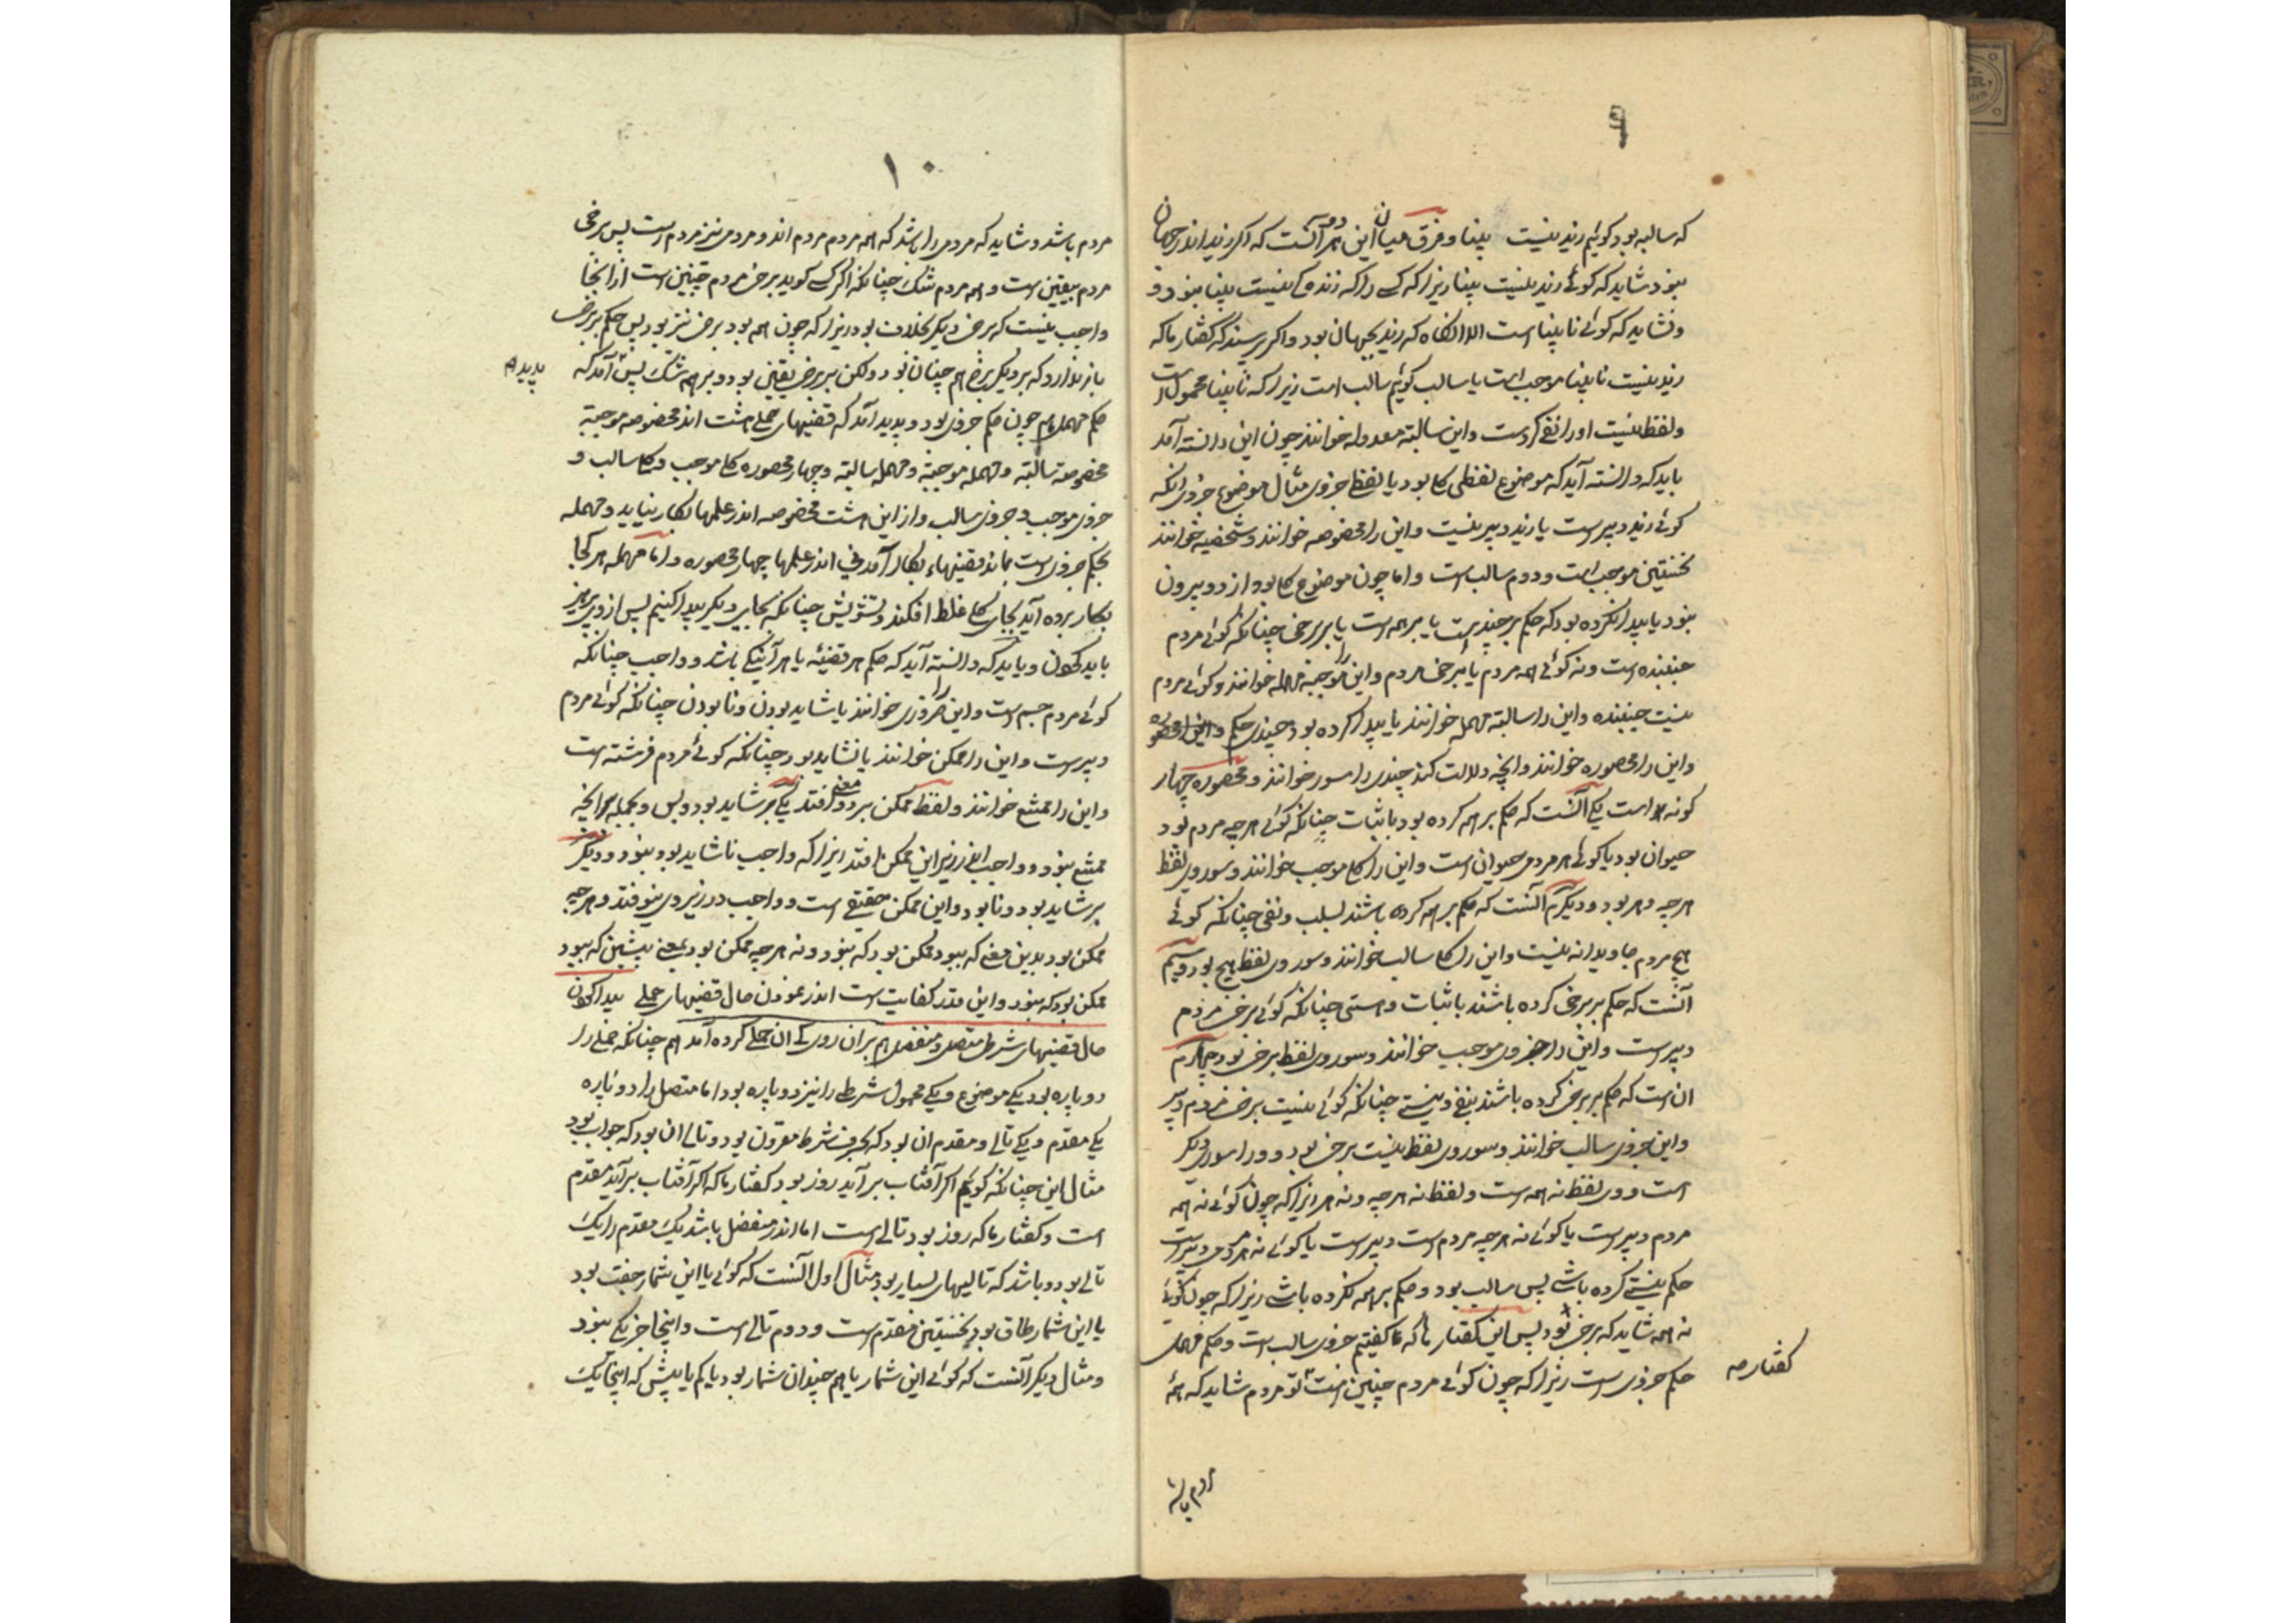 که سالبه بود کوئیم زید نیست بینا و فرق میان این هر دو آنست که اکر زید اندر جهان
نبود شاید که کوئی زید نیست بینا زیرا که کسی را که زنده نیست بینا نبود و
ونشاید که کوئی نابینا است الا انکاه که زید بجهان بود واکر پرسند که کفتار ما که
زید نیست نابینا موجب است یا سالب کوئیم سالب است زیرا که نابینا محمول است
ولفظ نیست اورا نفی کردست واین سالبته معدوله خوانند چون این دانسته آمد
باید که دانسته آید که موضوع لفظی کلی بود یا لفظ جزوی مثال موضوع جزوی انکه
کوئی زید دبیرست یا زید دبیر نیست واین را مخصوصه خوانند وشخصیه خوانند
نخستین موجب است ودوم سالب است واما چون موضوع کلی بود از دو بیرون
نبود یا پیدا نکرده بود که حکم بر چند است یا بر همه است یا بر برخی چنانکه کوئی مردم
جنبنده است ونه کوئی همه مردم یا برخی مردم واین را موجبه مهمله خوانند وکوئی مردم
نیست جنبنده واین را سالبته مهمله خوانند یا پیدا کرده بود چندی حکم واین را محصوره
واین را محصوره خوانند وانچه دلالت کند چندی را سور خوانند ومحصوره چهار
کونه است یکی آنست که حکم بر همه کرده بود باثبات چنانکه کوئی هر چه مردم بود
حیوان بود یا کوئی هر مردمی حیوان است واین را کلی موجب خوانند وسور وی لفظ
هر چه وهر بود ودیکر آنست که حکم بر همه کرده باشند بسلب ونفی چنانکه کوئی
هیچ مردم جاویدانه نیست واین را کلی سالب خوانند وسور وی لفظ هیچ بود وسیم
آنست که حکم بر برخی کرده باشند باثبات وهستی چنانکه کوئی برخی مردم
دبیرست واین را جزوی موجب خوانند وسور وی لفظ برخی بود چهارم
ان است که حکم بر برخی کرده باشند بنفی ونیستی چنانکه کوئی نیست برخی مردم دبیر
واین جزوی سالب خوانند وسور وی لفظ نیست برخی بود وورا سوری دیکر
است ووی لفظ نه همه است ولفظ نه هر چه ونه هر زیرا که چون کوئی نه همه
مردم دبیرست یا کوئی نه هر چه مردم است دبیرست یا کوئی نه هر مردمی دبیرست
حکم بنیستی کرده باشی پس سالب بود وحکم بر همه نکرده باشی زیرا که چون کوئی
نه همه شاید که برخی بود پس این کفتار ما که کفتیم جزوی سالب است وحکم مهمل
حکم جزوی است زیرا که چون کوئی مردم چنین است تو مردم شاید که همه
کفتار
مردم باشد
۱۰
مردم باشد وشاید که مردمی را باشد که همه مردم مردم اند ومردمی نیز مردم است پس برخی
مردم بیقین است وهمه مردم شک چنانکه اکر کسی کوید برخی مردم چنین است از اینجا
واجب نیست که برخی دیکر بخلاف بود زیرا که چون همه بود برخی نیز بود پس حکم بر برخی
باز ندارد که بر دیکر برخی هم چنان بود ولکن بر برخی یقین بود وبر همه شک پس آمد که
پدید
حکم مهمل هم چون حکم جزوی بود وپدید آمد که قضیهای حملی هشت اند مخصوصه موجبته
مخصوصه سالبته ومهمله موجبته ومهمله سالبته وچهار محصوره کلی موجب وکلی سالب و
جزوی موجب وجزوی سالب واز این هشت مخصوصه اندر علمها بکار نیاید ومهمله
بحکم جزوی است بماند قضیهاء بکار آمدنی اندر علمها چهار محصوره واما مهمله هر کجا
بکار برده آید بجای کلی غلط افکند وتشویش چنانکه بجایی دیکر پیدا کنیم پس ازوی پرهیز
باید کردن وباید که دانسته آید که حکم هر قضیئه یا هر آئینکی باشد وواجب چنانکه
کوئی مردم جسم است واین را ضروری خوانند یا شاید بودن ونابودن چنانکه کوئی مردم
دبیرست واین را ممکن خوانند یا نشاید بود چنانکه کوئی مردم فرشته است
واین را ممتنع خوانند ولفظ ممکن بر دو معنی افتد یکی بر شاید بود وبس وبجمله هر انچه
ممتنع نبود وواجب اندر زیر این ممکن افتد ازیرا که واجب ناشاید بود نبود ودیکر
بر شاید بود ونابود واین ممکن حقیقی است وواجب در زیر وی نیوفتد وهر چه
ممکن بود بدین معنی که ببود ممکن بود که نبود ونه هر چه ممکن بود بمعنی پیشین که ببود
ممکن بود که نبود واین قدر کفایت است اندر نمودن حال قضیهای حملی پیدا کردن
حال قضیهای شرطی متصل ومنفصل هم بران روی که ان حملی کرده آمد هم چنانکه حملی را
دو پاره بود یکی موضوع ویکی محمول شرطی را نیز دو پاره بود اما متصل را دو پاره
یکی مقدم ویکی تالی ومقدم ان بود که بحرف شرط مقرون بود وتالی ان بود که جواب بود
مثال این چنانکه کوئیم اکر آفتاب بر آید روز بود کفتار ما که اکر آفتاب بر آید مقدم
است وکفتار ما که روز بود تالی است اما اندر منفصل باشد یک مقدم را یک
تالی بود وباشد که تالیهای بسیار بود مثال اول آنست که کوئی یا این شمار جفت بود
یا این شمار طاق بود نخستین مقدم است ودوم تالی است واینجا جز یکی نبود
ومثال دیکر آنست که کوئی این شمار یا هم چندان شمار بود یا کم یا بیش که اینجا یک